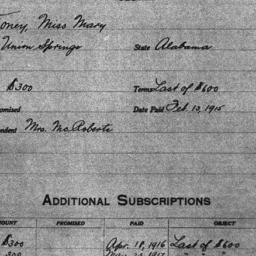 Toney, Miss Mary
Union Springs State Alabama
$300 Terms Last of $600
omised Date Paid Feb. 13, 1915
ndent Mrs. McRoberts
ADDITIONAL SUBSCRIPTIONS
OUNT PROMISED PAID OBJECT
$300 Apr. 18, 1916 Last of $600
300